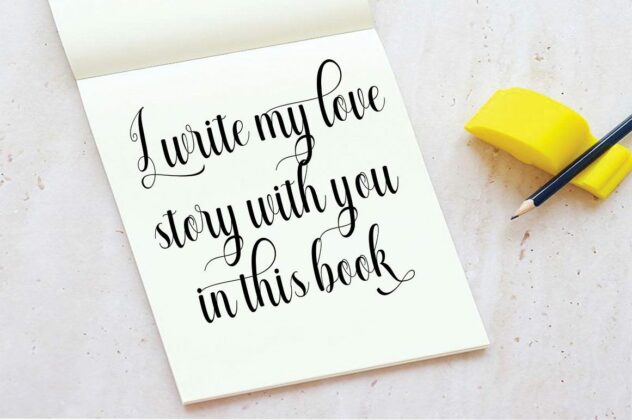 I write my love
story with you
in this book